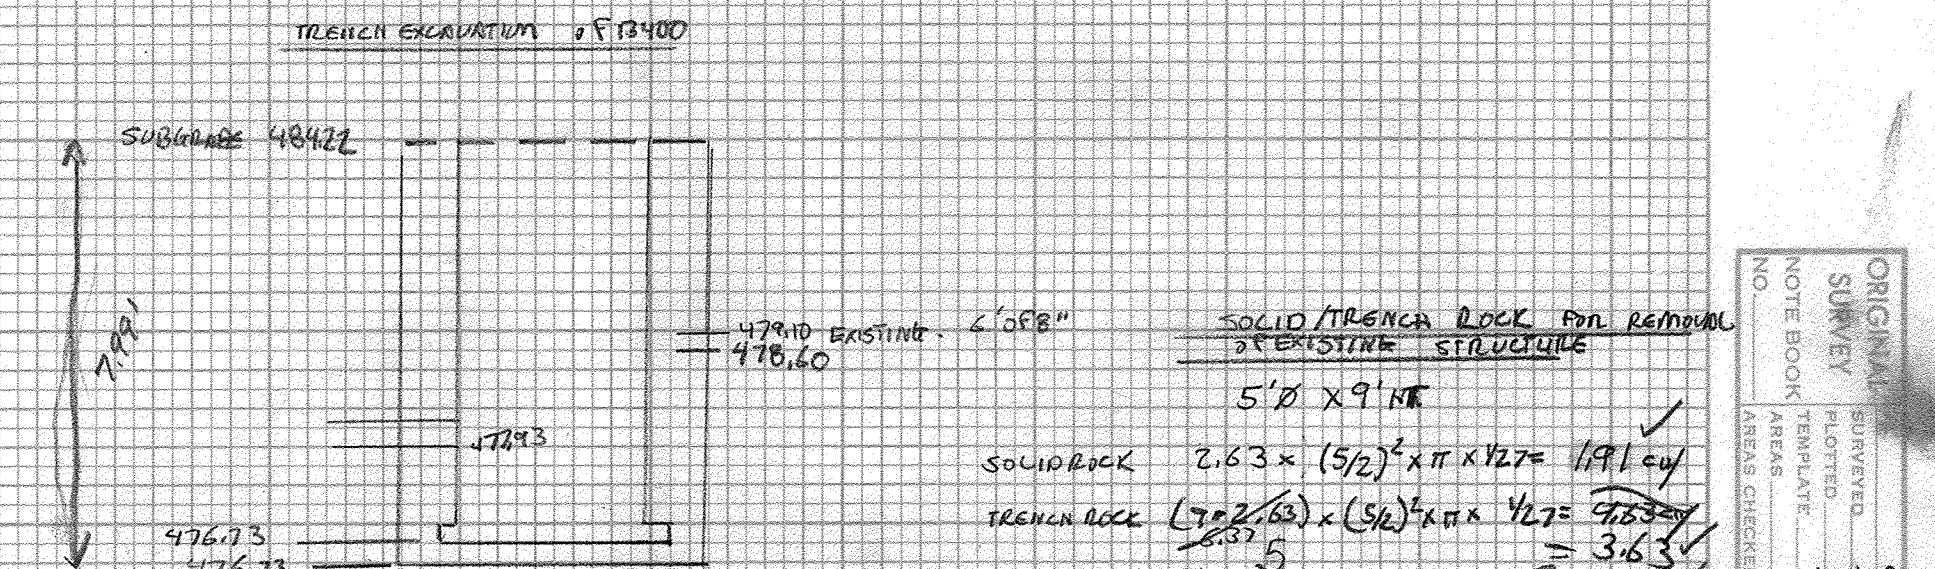 TRENCH EXCAVATION OF 13400
SUBGRADE 484.22
7.99'
479.10 EXISTING. 6' OF 8"
478.60
476.73
SOLID/TRENCH ROCK FOR REMOVAL
OF EXISTING STRUCTURE
5'Ø X 9' HT
SOLID ROCK 2.63 x (5/2)² x π x 1/27 = 1.91 cy
TRENCH ROCK (7-2.63) x (5/2)² x π x 1/27 =
5
= 3.63
ORIGINAL
SURVEY
NOTE BOOK
NO.
SURVEYED
PLOTTED
TEMPLATE
AREAS
AREAS CHECKE